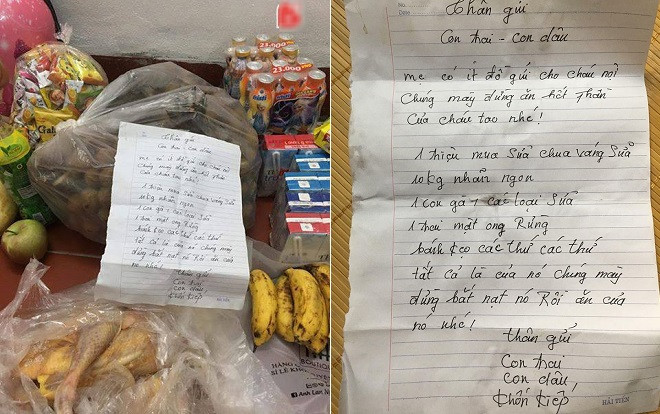 23.000
23.000
Thân gửi
Con trai - con dâu
mẹ có ít đồ gửi cho cháu nội
Chúng mày đừng ăn hết Phần
Của cháu tao nhé!
1 triệu mua sữa chua váng sữa
10kg nhãn ngon
1 con gà + các loại sữa
1 hai mật ong Rừng
bánh kẹo các thứ các thứ
tất cả là của nó chúng mày
đừng bắt nạt nó Rồi ăn của
nó nhé!
thân gửi
Con trai
con dâu,
khốn kiếp,
No.
Date
Thân gửi
Con trai - con dâu
mẹ có ít đồ gửi cho cháu nội
Chúng mày đừng ăn hết Phần
Của cháu tao nhé!
1 triệu mua sữa chua váng sữa
10kg nhãn ngon
1 con gà + các loại sữa
1 hai mật ong Rừng
bánh kẹo các thứ các thứ
tất cả là của nó chúng mày
đừng bắt nạt nó Rồi ăn của
nó nhé!
thân gửi
Con trai
con dâu,
khốn kiếp,
HẢI TIẾN